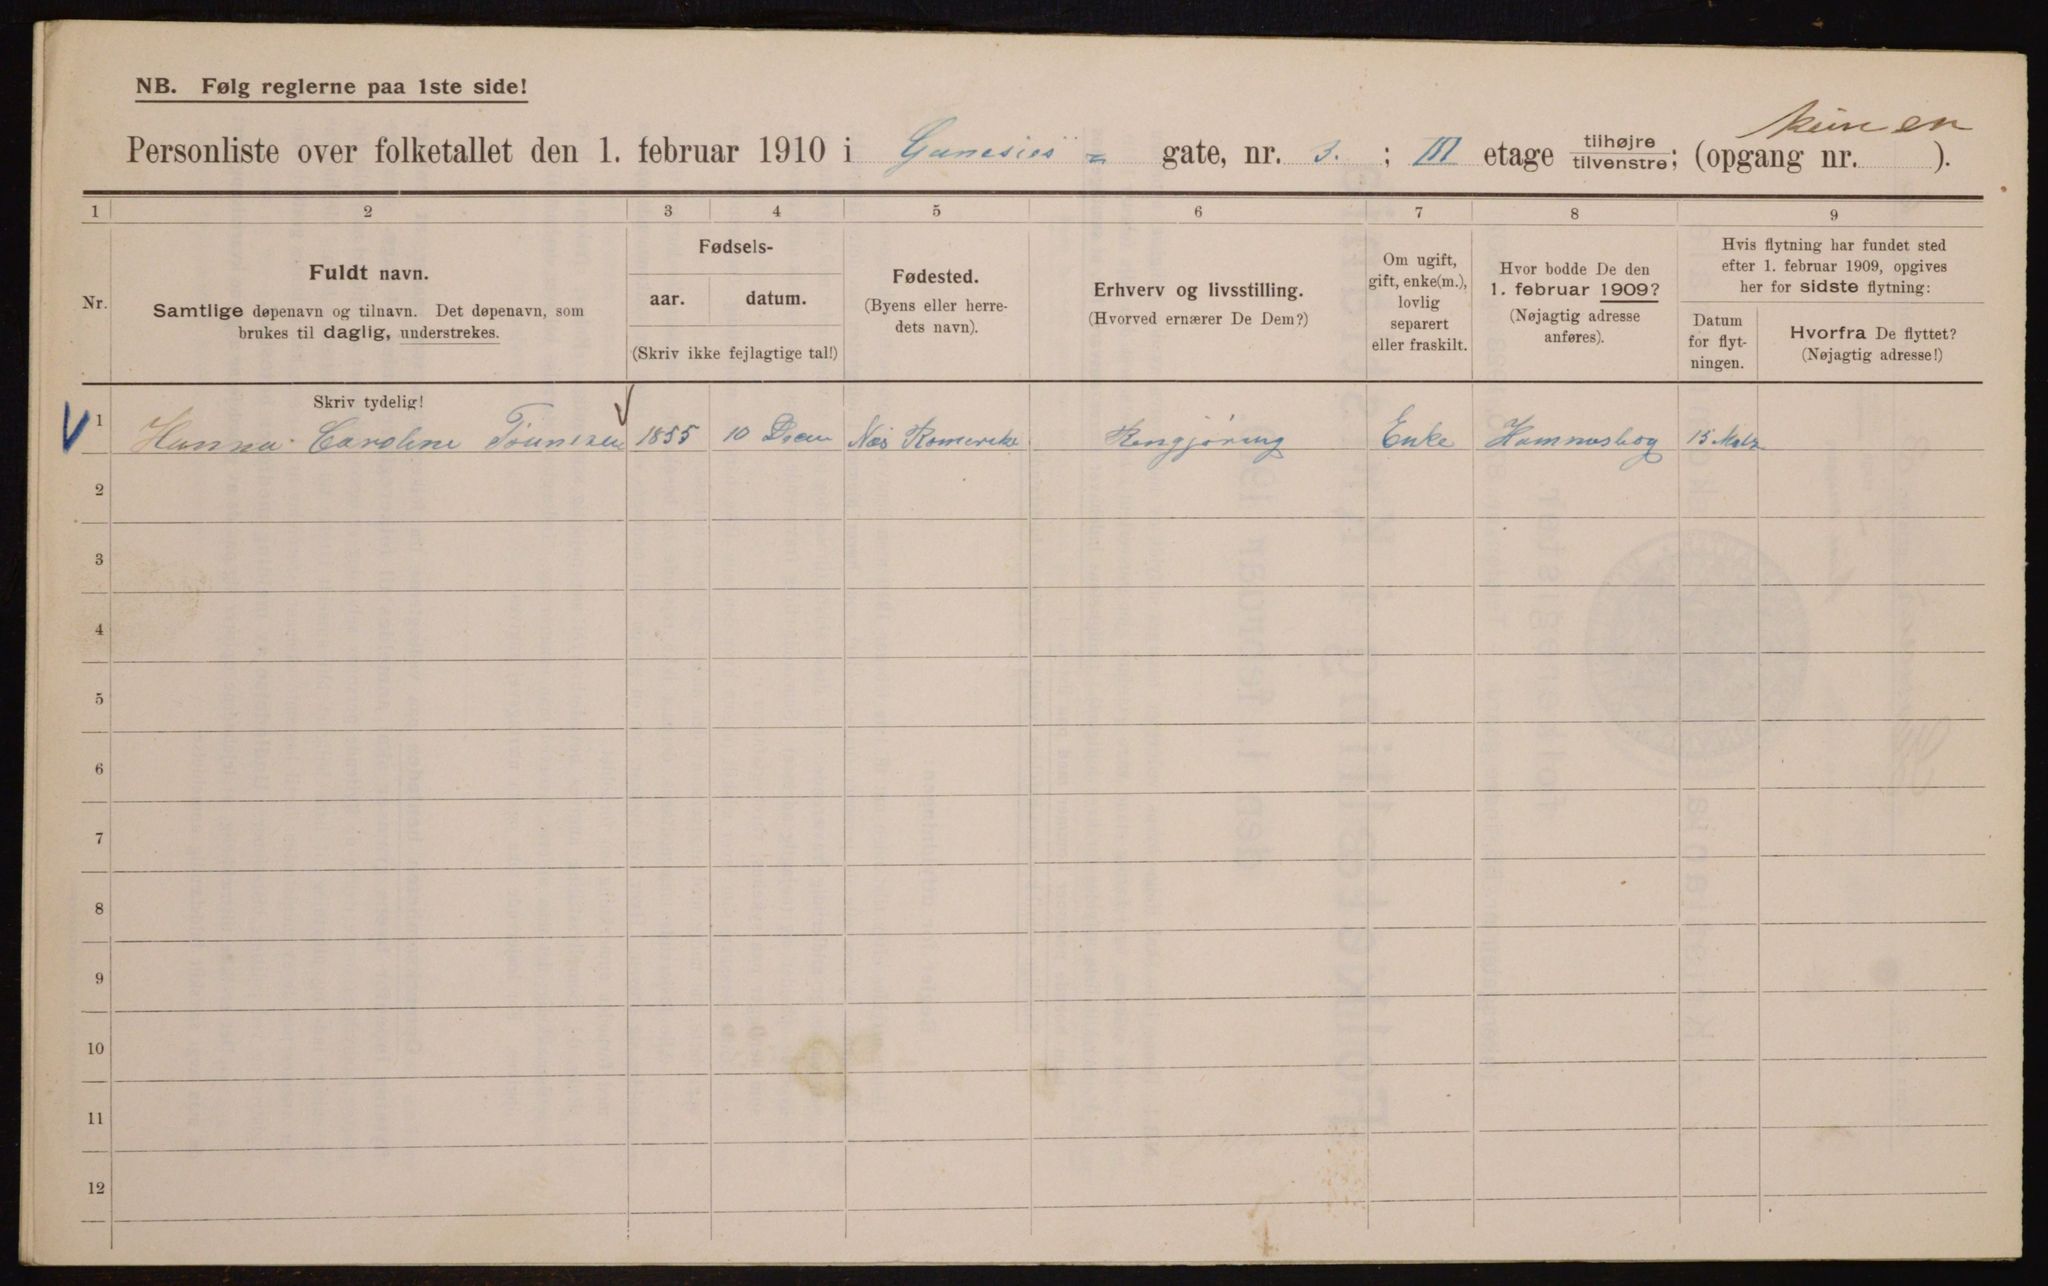 NB. Følg reglerne paa 1ste side!
Personliste over folketallet den 1. februar 1910 i gate, nr. 3. ; III etage tilhøjre tilvenstre; (opgang nr. ).
1 2 3 4 5 6 7 8 9
Nr.
Fuldt navn.
Samtlige døpenavn og tilnavn. Det døpenavn, som
brukes til daglig, understrekes.
Fødsels-
aar. datum.
(Skriv ikke fejlagtige tal!)
Fødested.
(Byens eller herre-
dets navn).
Erhverv og livsstilling.
(Hvorved ernærer De Dem?)
Om ugift,
gift, enke(m.),
lovlig
separert
eller fraskilt.
Hvor bodde De den
1. februar 1909?
(Nøjagtig adresse
anføres).
Hvis flytning har fundet sted
efter 1. februar 1909, opgives
her for sidste flytning:
Datum
for flyt-
ningen.
Hvorfra De flyttet?
(Nøjagtig adresse!)
Skriv tydelig!
1 Hanna Caroline 1855 10 Næs Romerike Rengjøring Enke 15
2
3
4
5
6
7
8
9
10
11
12